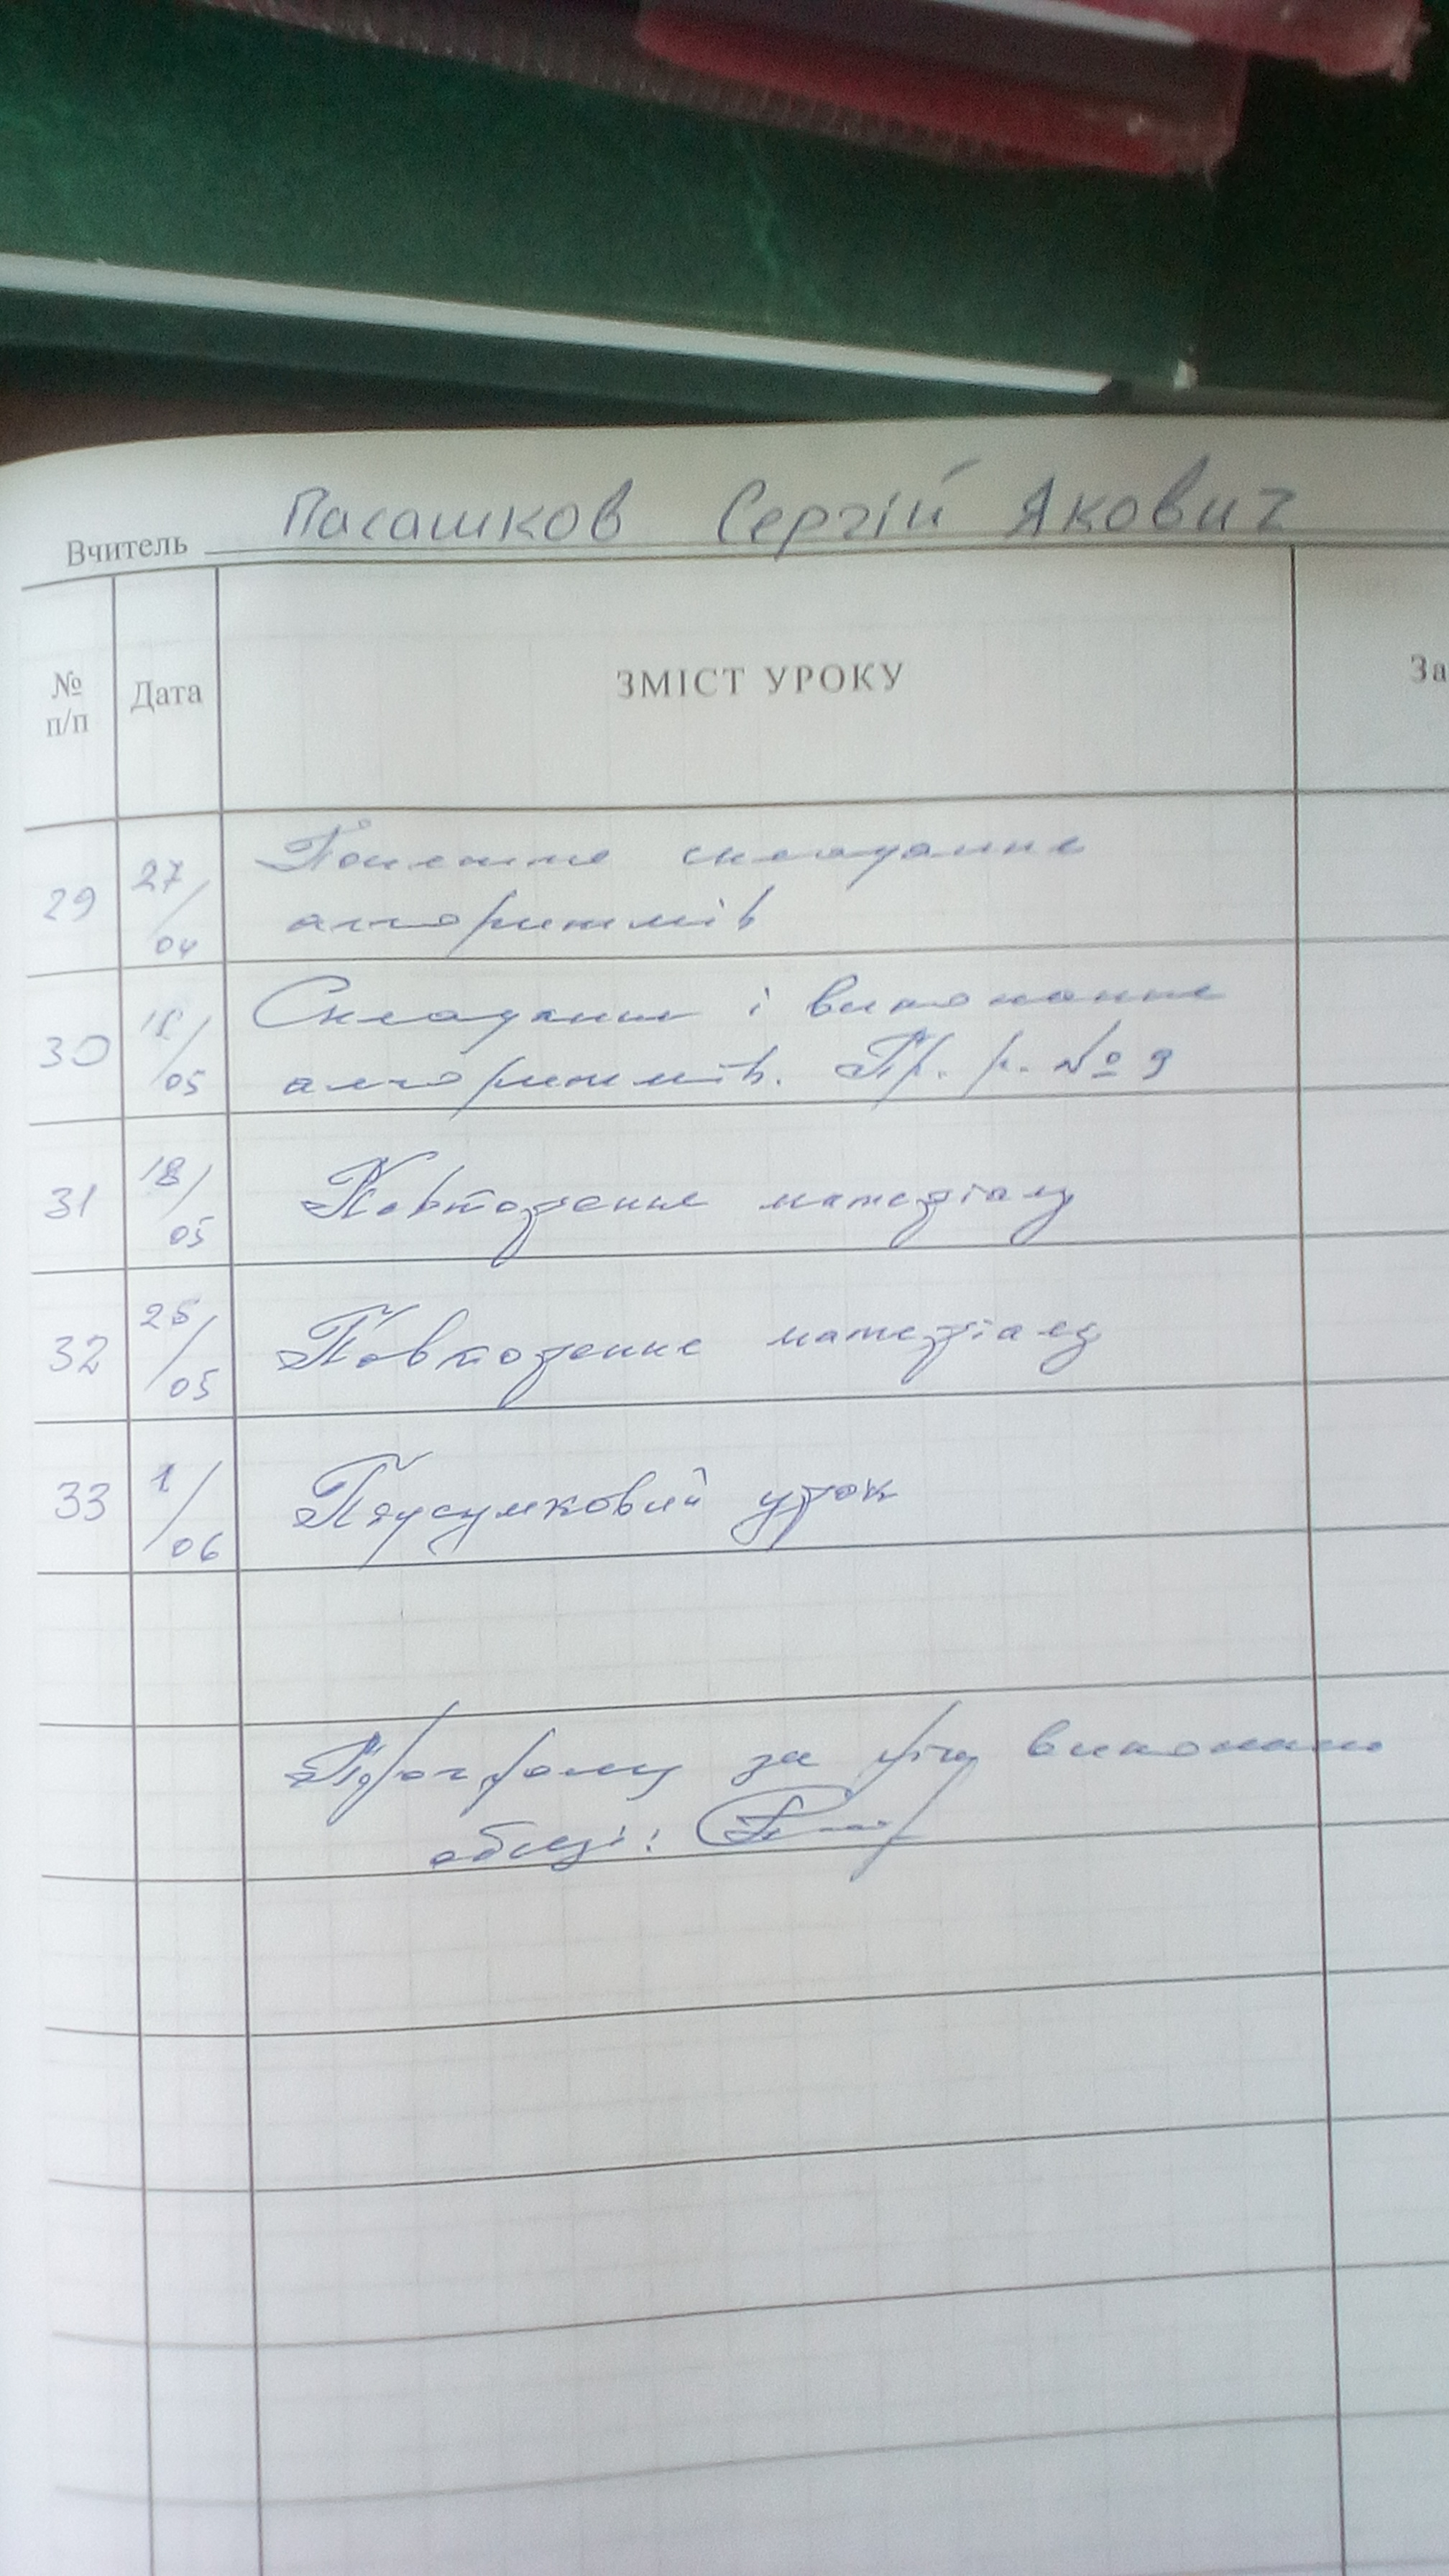 Вчитель Пасашков Сергій Якович
№ п/п Дата ЗМІСТ УРОКУ За
29 27/04 Поняття складання
алгоритмів
30 18/05 Складання і виконання
алгоритмів. Пр. р. № 9
31 18/05 Повторення матеріалу
32 25/05 Повторення матеріалу
33 1/06 Підсумковий урок
Програму за рік виконано